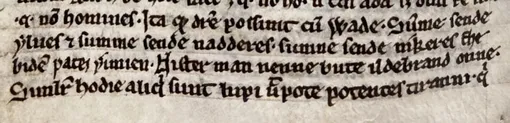 · q̄ nō homines · Ita q̄ dr̄e possunt cū Wade · Sūme sende
ẏlues ⁊ summe sende nadderes · sumne sende nikeres the
biden pates ƿunien · Nister man nenne bute ildebrand onne ·
Simlr̄ hodie aliq̇ sunt lupi ūpote potentes tiranni · q̇